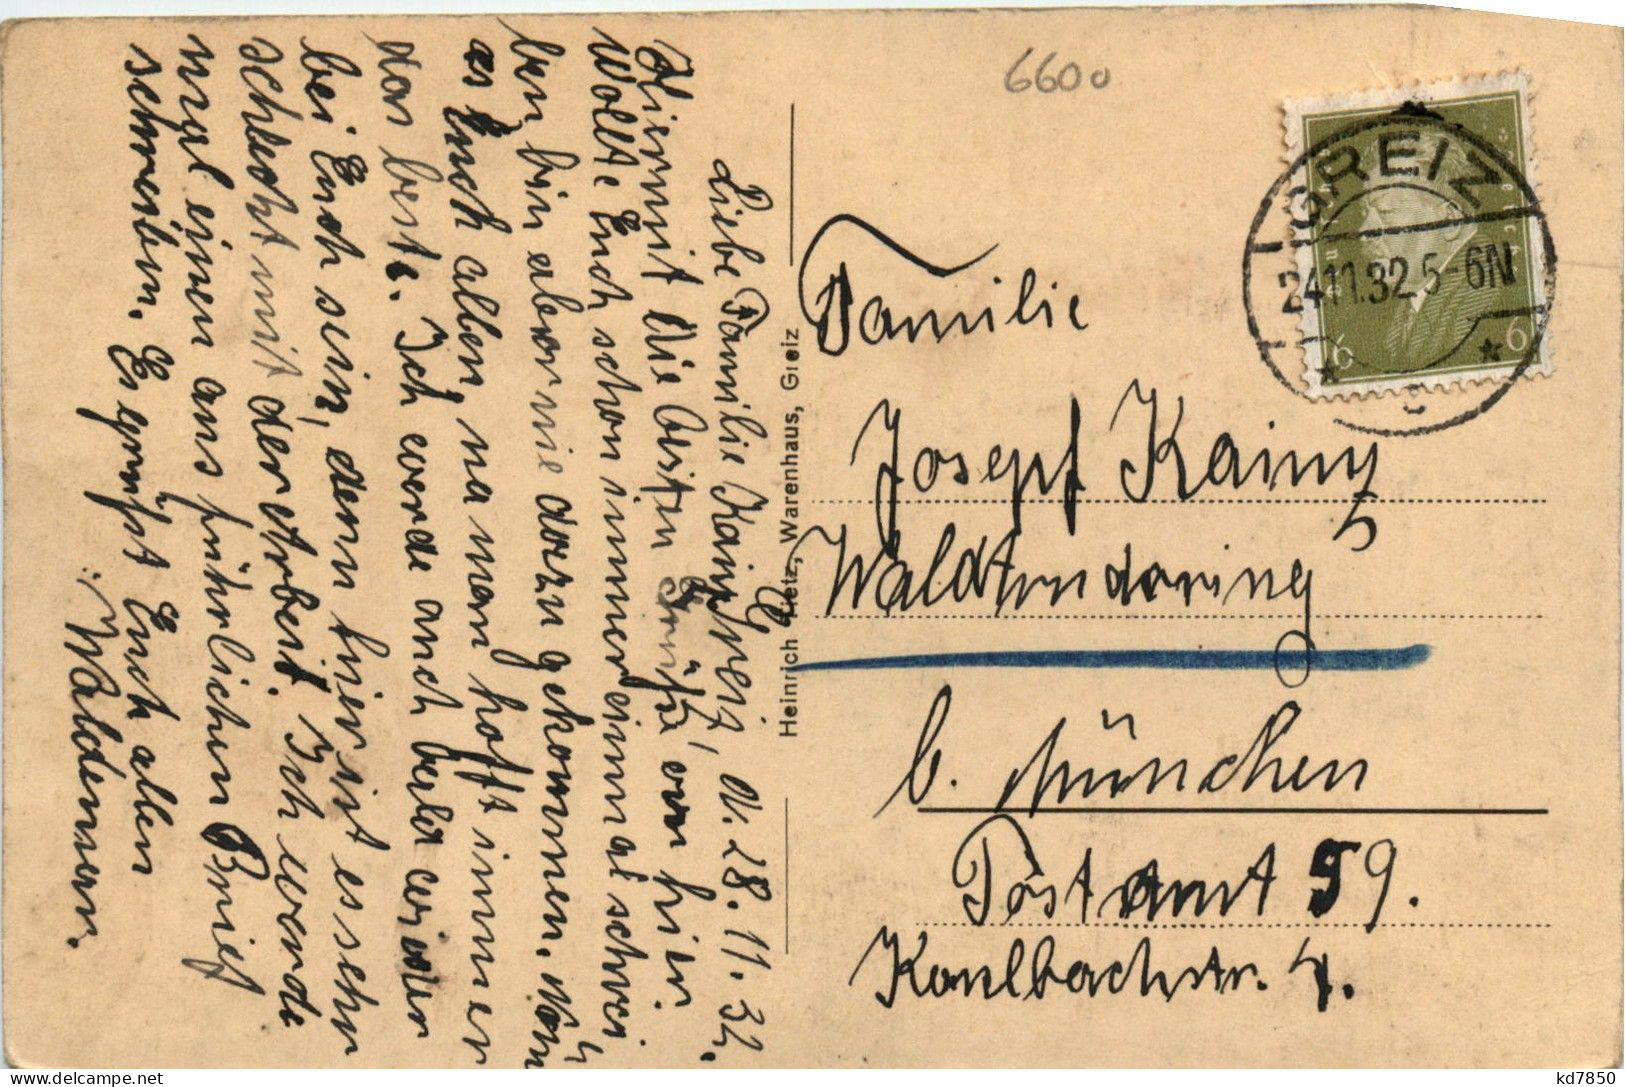 6600
GREIZ
24.11.32.5-6N
6 6
Familie
Josef Kainz
Waldtrudering
b. München
Postamt 59.
Kaulbachstr. 4.
Heinrich Tietz, Warenhaus, Greiz
Greiz, d. 28.11.32.
Liebe Familie Kainz
Hiermit die besten Grüße von hier
Wollte Euch schon immer einmal schrei
ben, bin aber nie dazu gekommen. Wie
es Euch allen, na man hofft immer
das beste. Ich werde auch bald wieder
bei Euch sein, denn hier ist es sehr
schlecht mit der Arbeit. Ich werde
mal einen ausführlichen Brief
schreiben. Es grüßt Euch allen
Waldemar.
kd7850